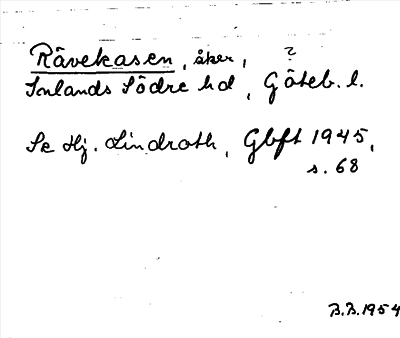 Råvekasen, åker, ?
Inlands Södre hd, Göteb. l.
Se Hj. Lindroth, Gbft 1945,
s. 68
B.B. 1954